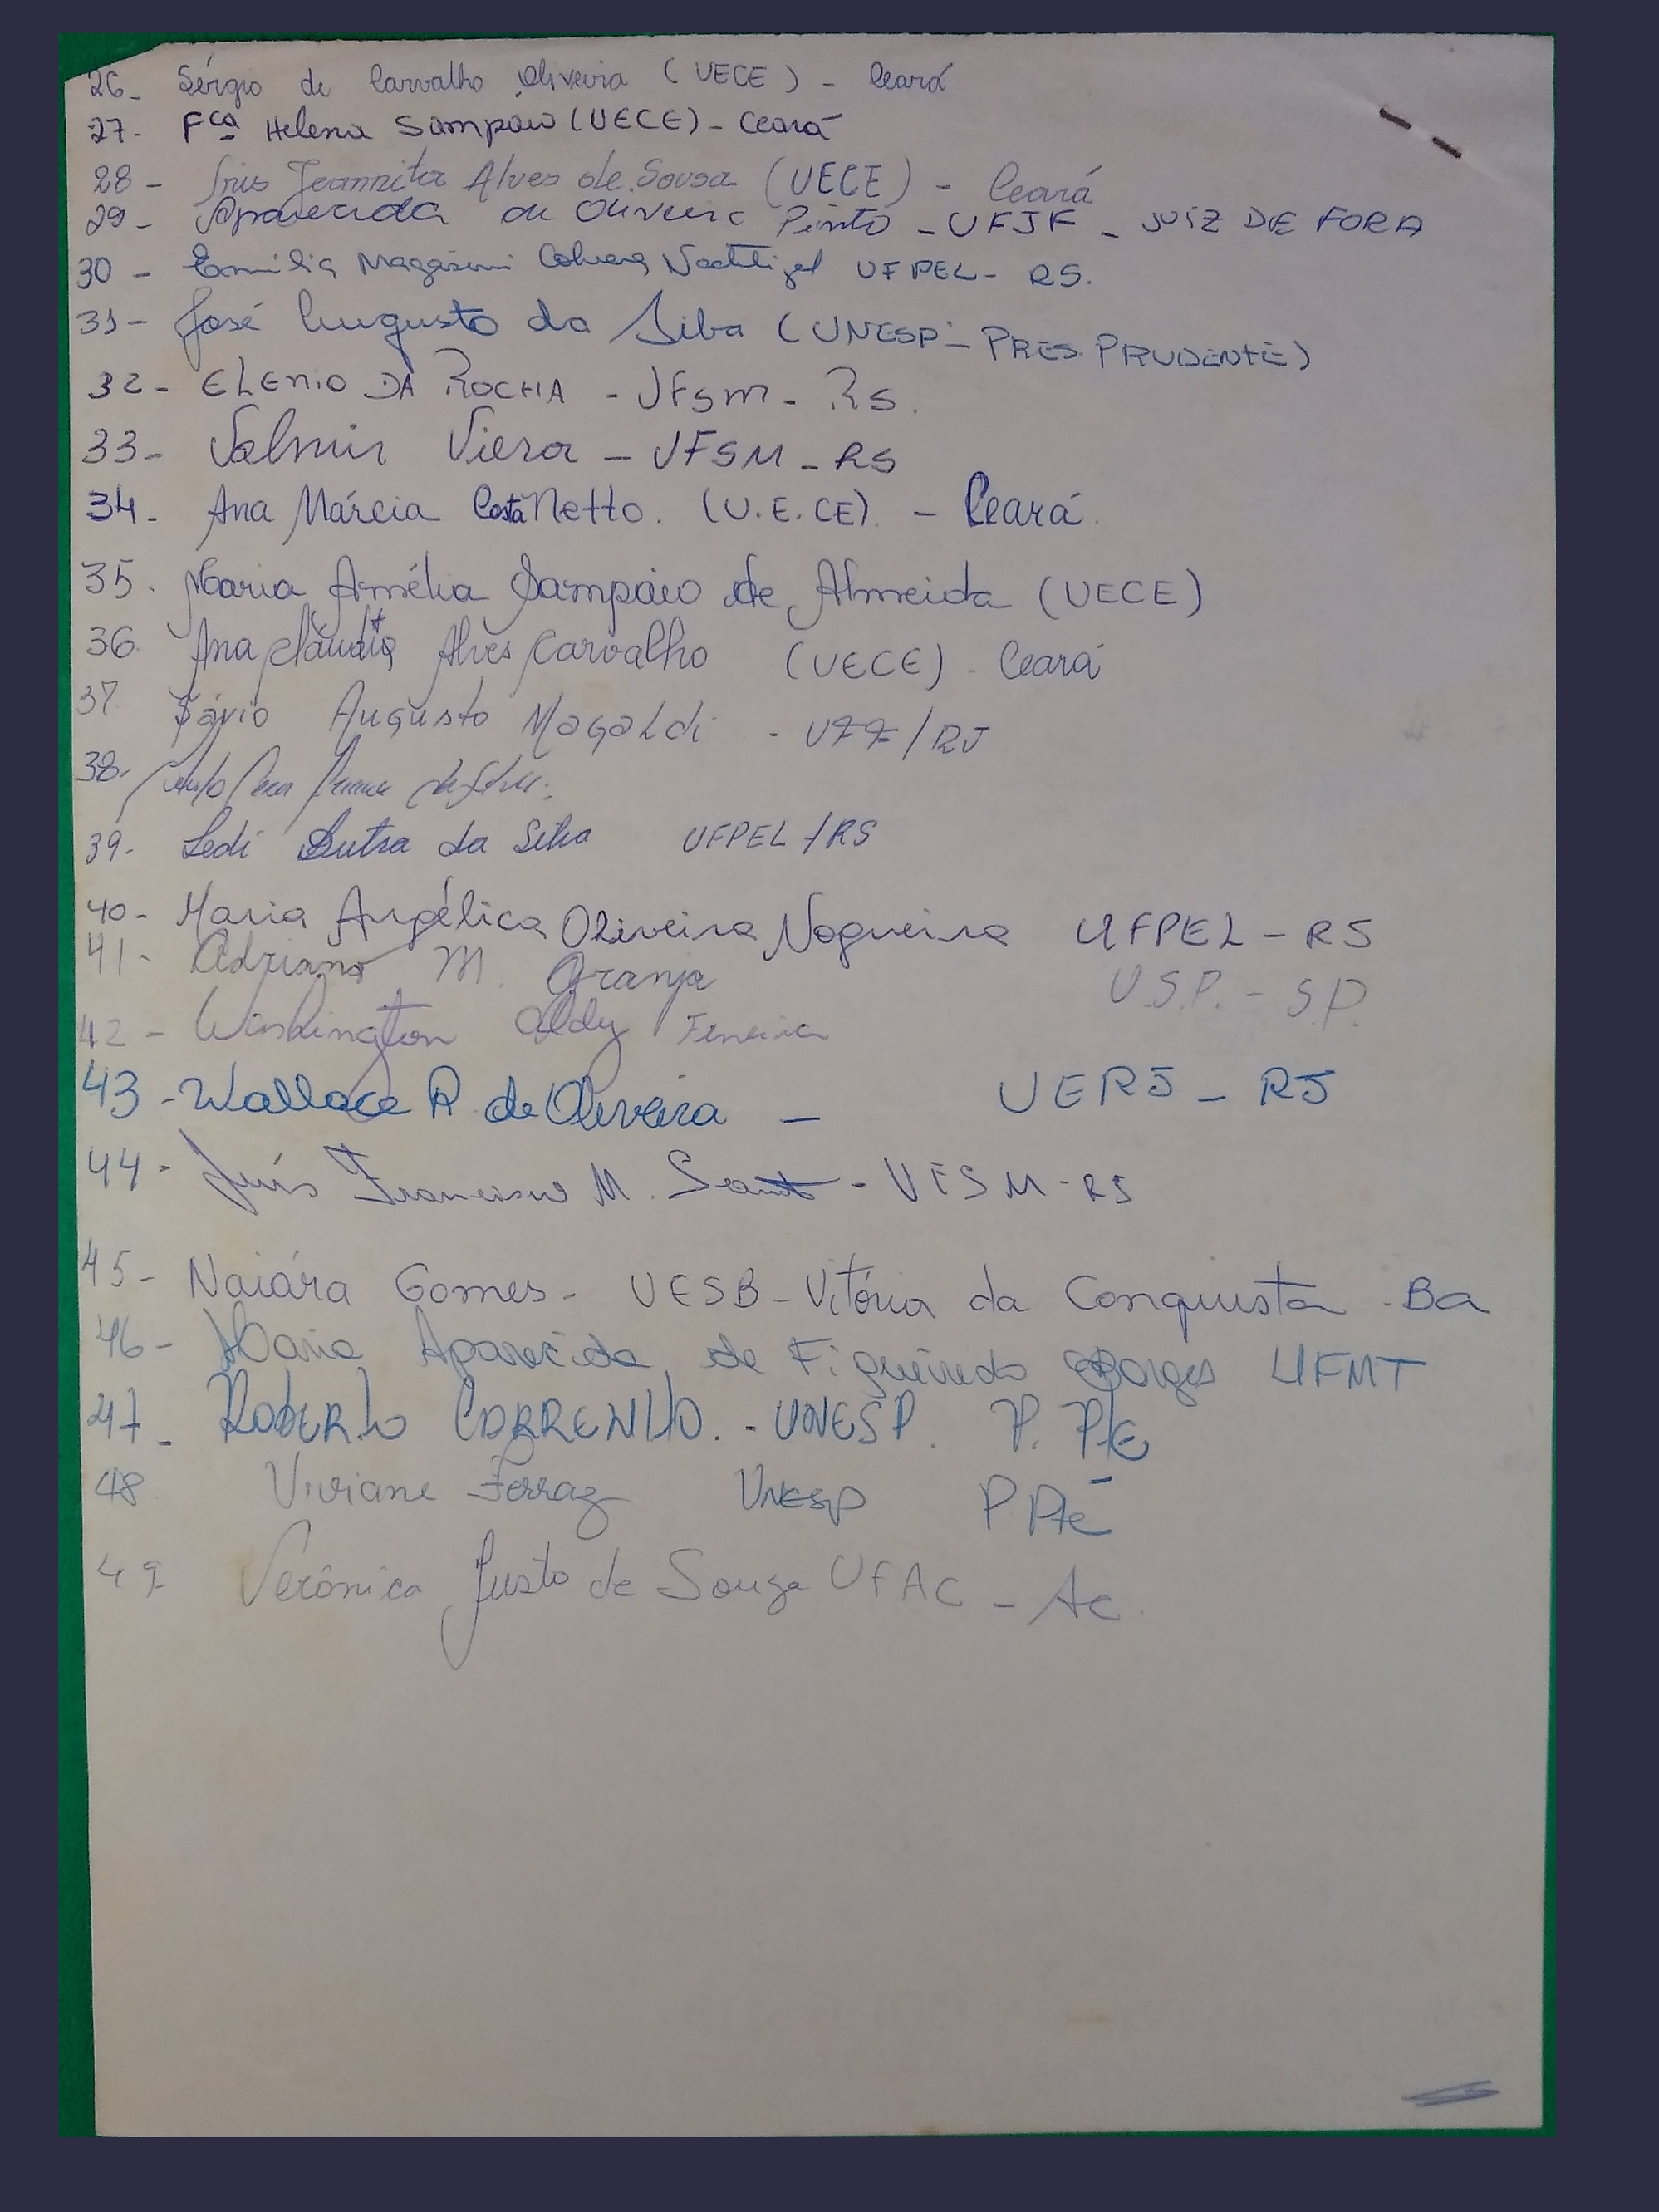 26- Sérgio de Carvalho Oliveira (UECE) - Ceará
27- Fca Helena Sampaio (UECE) - Ceará
28 - Iris Jeannita Alves de Sousa (UECE) - Ceará
29 - Aparecida de Oliveira Pinto - UFJF - JUIZ DE FORA
30 - Emilia UFPEL - RS.
31 - José Augusto da Silva (UNESP - PRES. PRUDENTE)
32 - ELENIO DA ROCHA - UFSM - RS.
33 - Valmir Viera - UFSM - RS
34 - Ana Márcia Costa Netto. (U.E.CE). - Ceará.
35. Maria Amélia Sampaio de Almeida (UECE)
36. Ana Claudia Alves Carvalho (UECE) - Ceará
37. Sávio Augusto Magaldi - UFF/RJ
38.
39. Ledi Dutra da Silva UFPEL/RS
40 - Maria Angélica Oliveira Nogueira UFPEL - RS
41 - Adriano M. Granja U.S.P. - S.P.
42 - Washington Aldy Ferreira
43 - Wallace R. de Oliveira - UERJ - RJ
44 - Luís Francisco M. - UFSM - RS
45 - Naiára Gomes - UESB - Vitória da Conquista - Ba
46 - Maria Aparecida de Figueiredo Borges UFMT
47 - ROBERTO - UNESP. P. PTE
48 Viviane Ferraz Unesp P Pte
49 Verônica Justo de Souza UFAC - Ac.